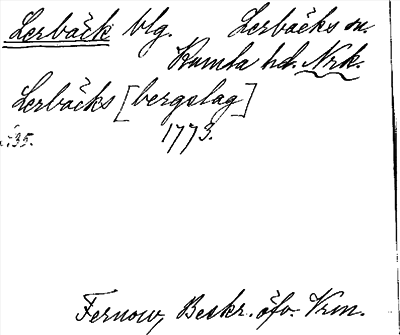 Lerbäck blg. Lerbäcks sn.
Kumla hd. Nrk.
Lerbäcks [bergslag]
135. 1773.
Fernow, Beskr. öfv. Vrm.